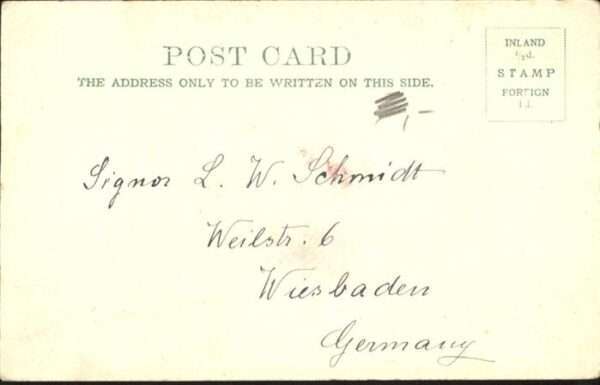 POST CARD
THE ADDRESS ONLY TO BE WRITTEN ON THIS SIDE.
INLAND
½d.
STAMP
FOREIGN
1d.
Signor L. W. Schmidt
Weilstr. 6
Wiesbaden
Germany